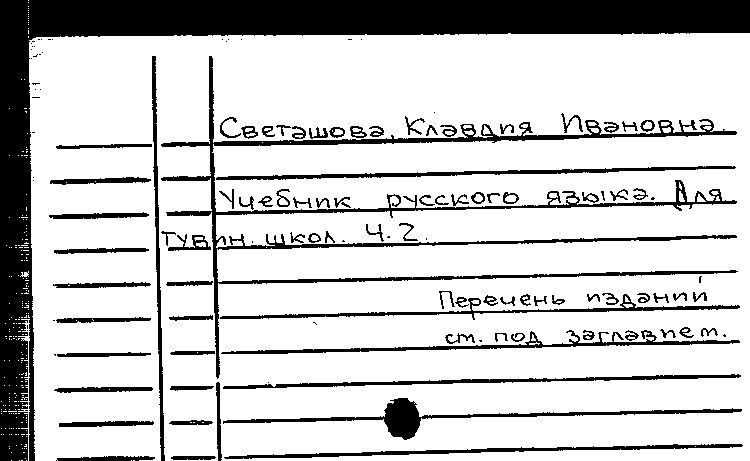 Светашова, Клавдия Ивановна.
Учебник русского языка. Для
тувин. школ. Ч. 2.
Перечень изданий
см. под заглавием.